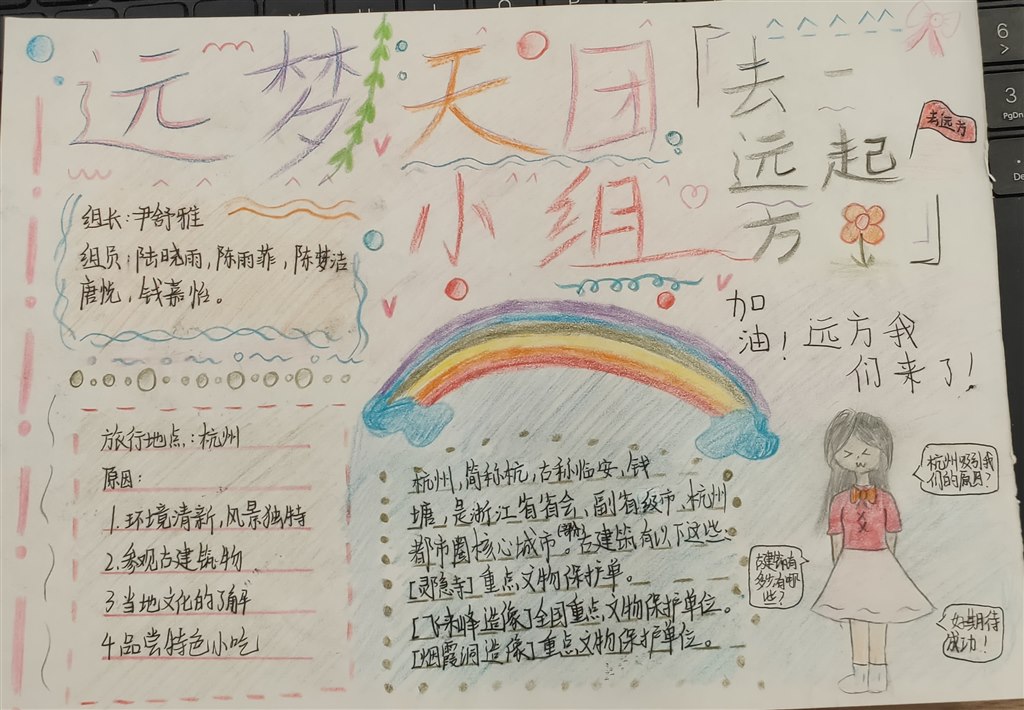 远梦天团
小组
「去远方
一起」
去远方
组长:尹舒雅
组员:陆晓雨,陈雨菲,陈梦洁
唐悦,钱嘉怡。
加油!远方我
们来了!
旅行地点:杭州
原因:
1.环境清新,风景独特
2.参观古建筑物
3当地文化的了解
4品尝特色小吃
杭州,简称杭,古称临安,钱
塘,是浙江省省会、副省级市、杭州
都市圈核心城市。(部分)古建筑有以下这些、
[灵隐寺]重点文物保护单。
[飞来峰造像]全国重点文物保护单位。
[烟霞洞造像]重点文物保护单位。
杭州吸引我
们的原因?
古建筑有
多少有哪
些?
好期待
成功!
6
3
PgDn